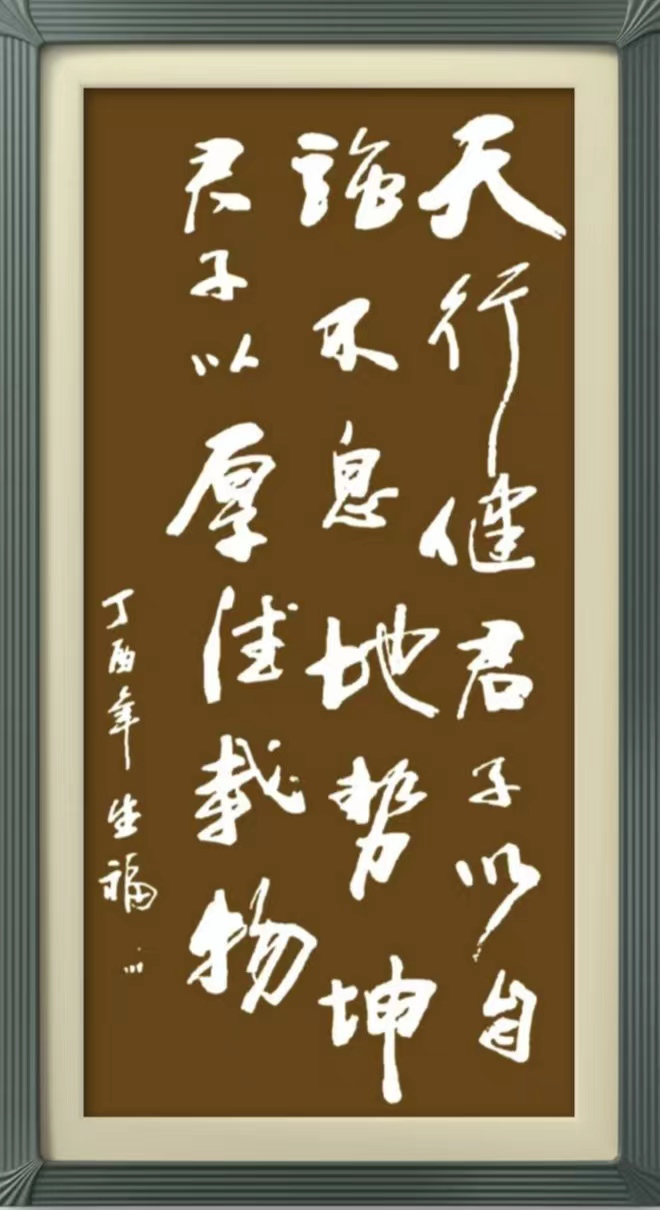 天行健君子以自
强不息地势坤
君子以厚德载物
丁酉年生福